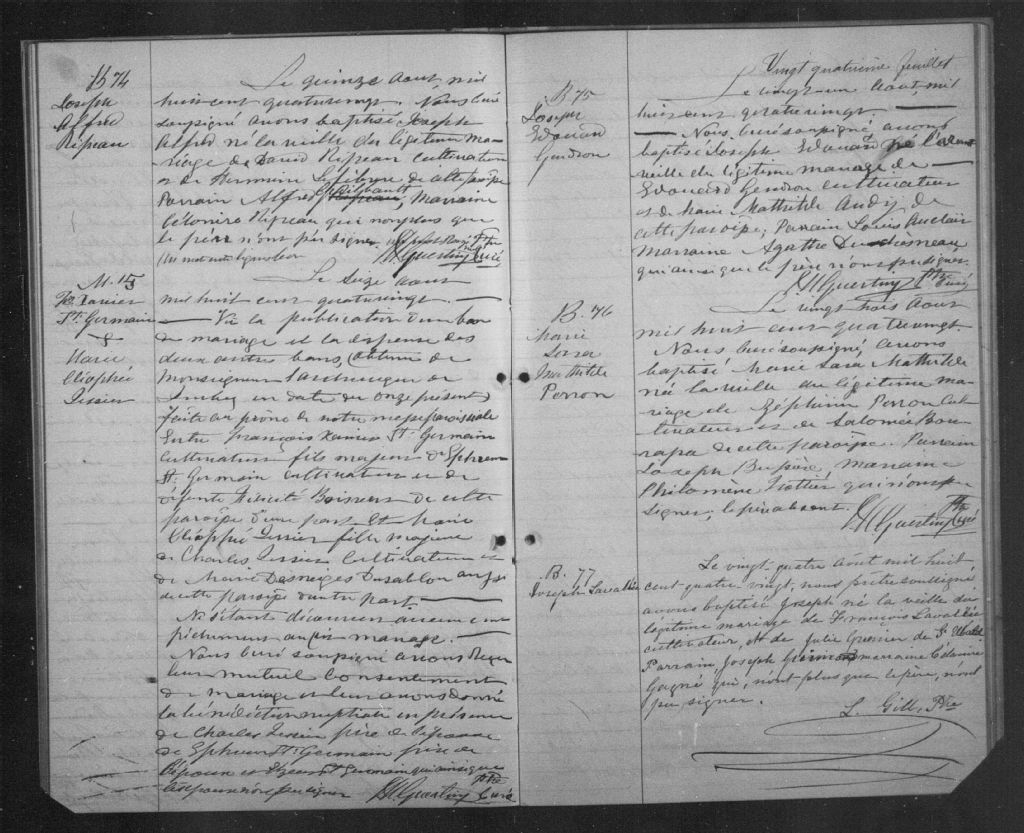 B 74
Joseph
Alfred
Ripeau
Le quinze Aout mil
huit cent quatrevingt. Nous Curé
soussigné avons baptisé Joseph
Alfred né la veille du légitime ma-
riage de David Ripeau cultivateur
et de Lefebvre de cette paroisse
Parrain Alfred Marraine
Ripeau qui non plus que
le père n'ont pu signer
Ptre
Curé
M. 15
Frs Xavier
St. Germain
&
Marie
Cléophée
Tessier
Le Seize Aout
mil huit cent quatrevingt.
Vu la publication d'un ban
de mariage et la dispense des
deux autres bans, obtenue de
Monseigneur l'archevêque de
Québec en date du onze présent
faite au prône de notre messe paroissiale
Entre François Xavier St. Germain
cultivateur fils majeur de Ephrem
St. Germain cultivateur et de
défunte Félicité de cette
paroisse d'une part. Et Marie
Cléophée Tessier fille majeure
de Charles Tessier Cultivateur et
de Marie Desneiges Dusablon aussi
de cette paroisse d'autre part.
Ne s'étant découvert aucun em-
pêchement au dit mariage.
Nous Curé soussigné avons reçu
leur mutuel Consentement
de mariage et leur avons donné
la bénédiction nuptiale en présence
de Charles Tessier père de l'épouse
de Ephrem St. Germain père de
l'époux et St Germain qui ainsi que
les époux n'ont pu signer
Ptre
Curé
B. 75
Joseph
Edouard
Gendron
Vingt quatrième feuillet
Le vingt un Aout mil
huit cent quatrevingt
Nous, Curé soussigné, avons
baptisé Joseph Edouard né l'avant
veille du légitime mariage de
Edouard Gendron cultivateur
et de Marie Mathilde Audy de
cette paroisse; Parrain Louis Auclair
Marraine Agathe
qui ainsi que le père n'ont pu signer
Ptre
Curé
B. 76
Marie
Sara
Mathilde
Perron
Le vingt trois Aout
mil huit cent quatrevingt.
Nous Curé soussigné, avons
baptisé Marie Sara Mathilde
née la veille du légitime ma-
riage de Zéphirin Perron Cul-
tivateur et de Salomée
de cette paroisse. Parrain
Joseph marraine
Philomène Trottier qui n'ont pu
signer; le père absent.
Ptre
Curé
B. 77
Joseph Lavallée
Le vingt-quatre août mil huit
cent quatre-vingt, nous prêtre soussigné
avons baptisé Joseph né la veille du
légitime mariage de François Lavallée
cultivateur, et de Julie Grenier de St Ubald
Parrain, Joseph marraine Célanire
Gagné qui, n'ont plus que le père, n'ont
pu signer.
L. Gill, Ptre